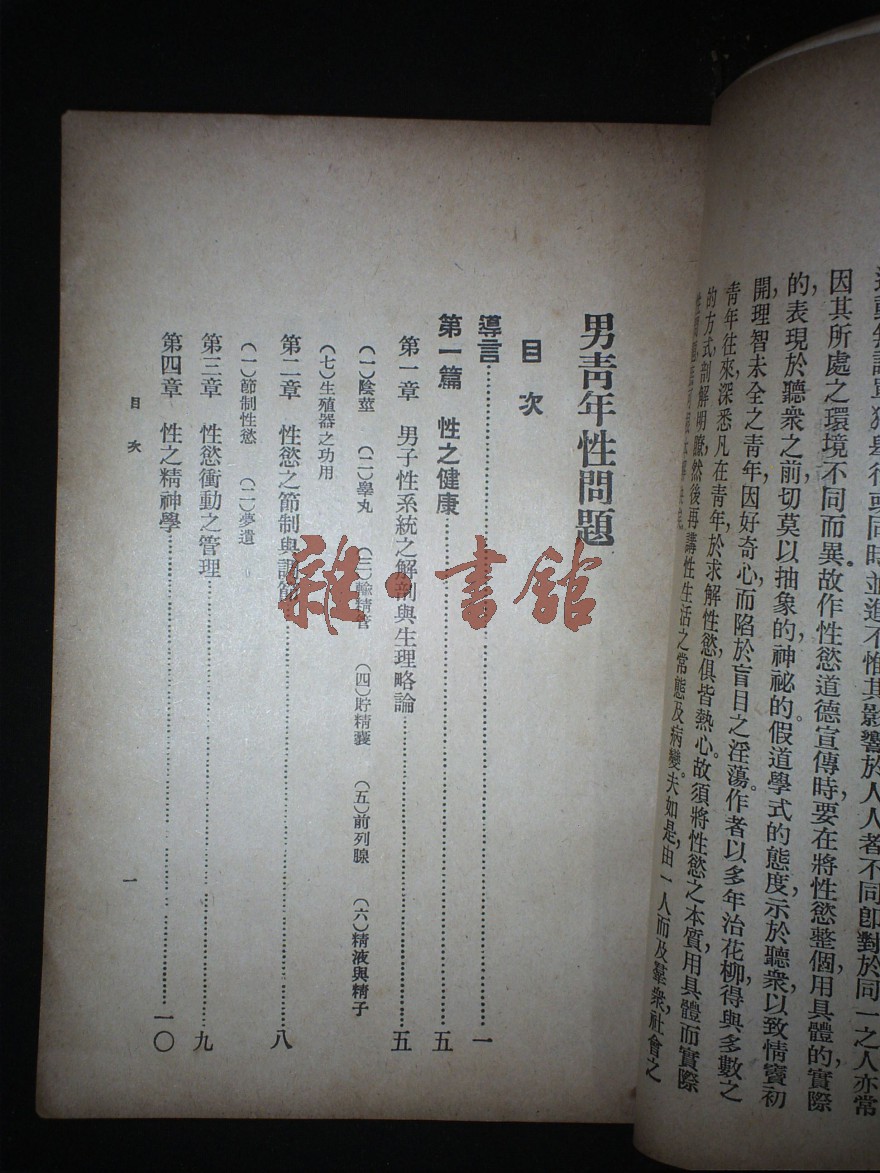 因其所處之環境不同而異。故作性慾道德宣傳時，要在將性慾整個用具體的，實際
的，表現於聽衆之前，切莫以抽象的神祕的假道學式的態度，示於聽衆，以致情竇初
開，理智未全之青年，因好奇心，而陷於盲目之淫蕩。作者以多年治花柳，得與多數之
青年往來，深悉凡在青年，於求解性慾，俱皆熱心。故須將性慾之本質，用具體而實際
的方式，剖解明瞭，然後再講性生活之常態及病變。夫如是，由一人而及羣衆，社會之
男青年性問題
目次
導言……一
第一篇 性之健康……五
第一章 男子性系統之解剖與生理略論……五
（一）陰莖 （二）睾丸 （三）輸精管 （四）貯精囊 （五）前列腺 （六）精液與精子
（七）生殖器之功用
第二章 性慾之節制與調節……八
（一）節制性慾 （二）夢遺
第三章 性慾衝動之管理……九
第四章 性之精神學……一〇
目次
一
雜·書館